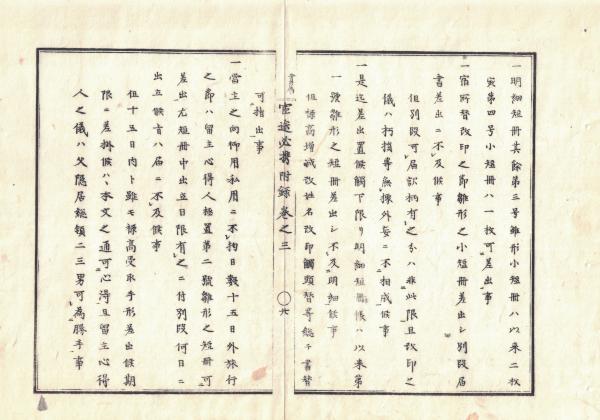 一明細短冊其餘第三号雛形小短冊ハ以来二枚
寅第四号小短冊ハ一枚可差出事
一宿所替改印之節雛形之小短冊差出シ別段届
書差出ニ不及候事
但別段可届訳柄有之分ハ非此限且改印之
儀ハ朽損等無據外妄ニ不相成候事
一是迄差出置候觸下限リ明細短冊帳ハ以来第
一號雛形之短冊差出シ不及明細候事
但禄高増減改姓名改印觸頭替等総テ書替
可指出事
官途必携附録巻之三
一當主之向御用私用ニ不拘日数十五日外旅行
之節ハ留主心得人極置第二號雛形之短冊可
差出尤短冊中出立日限有之ニ付別段何日ニ
出立候旨ハ届ニ不及候事
但十五日内ト雖モ禄高受取手形差出候期
限ニ差掛候ハヽ本文之通可心得且留主心得
人之儀ハ父隠居総領二三男可為勝手事